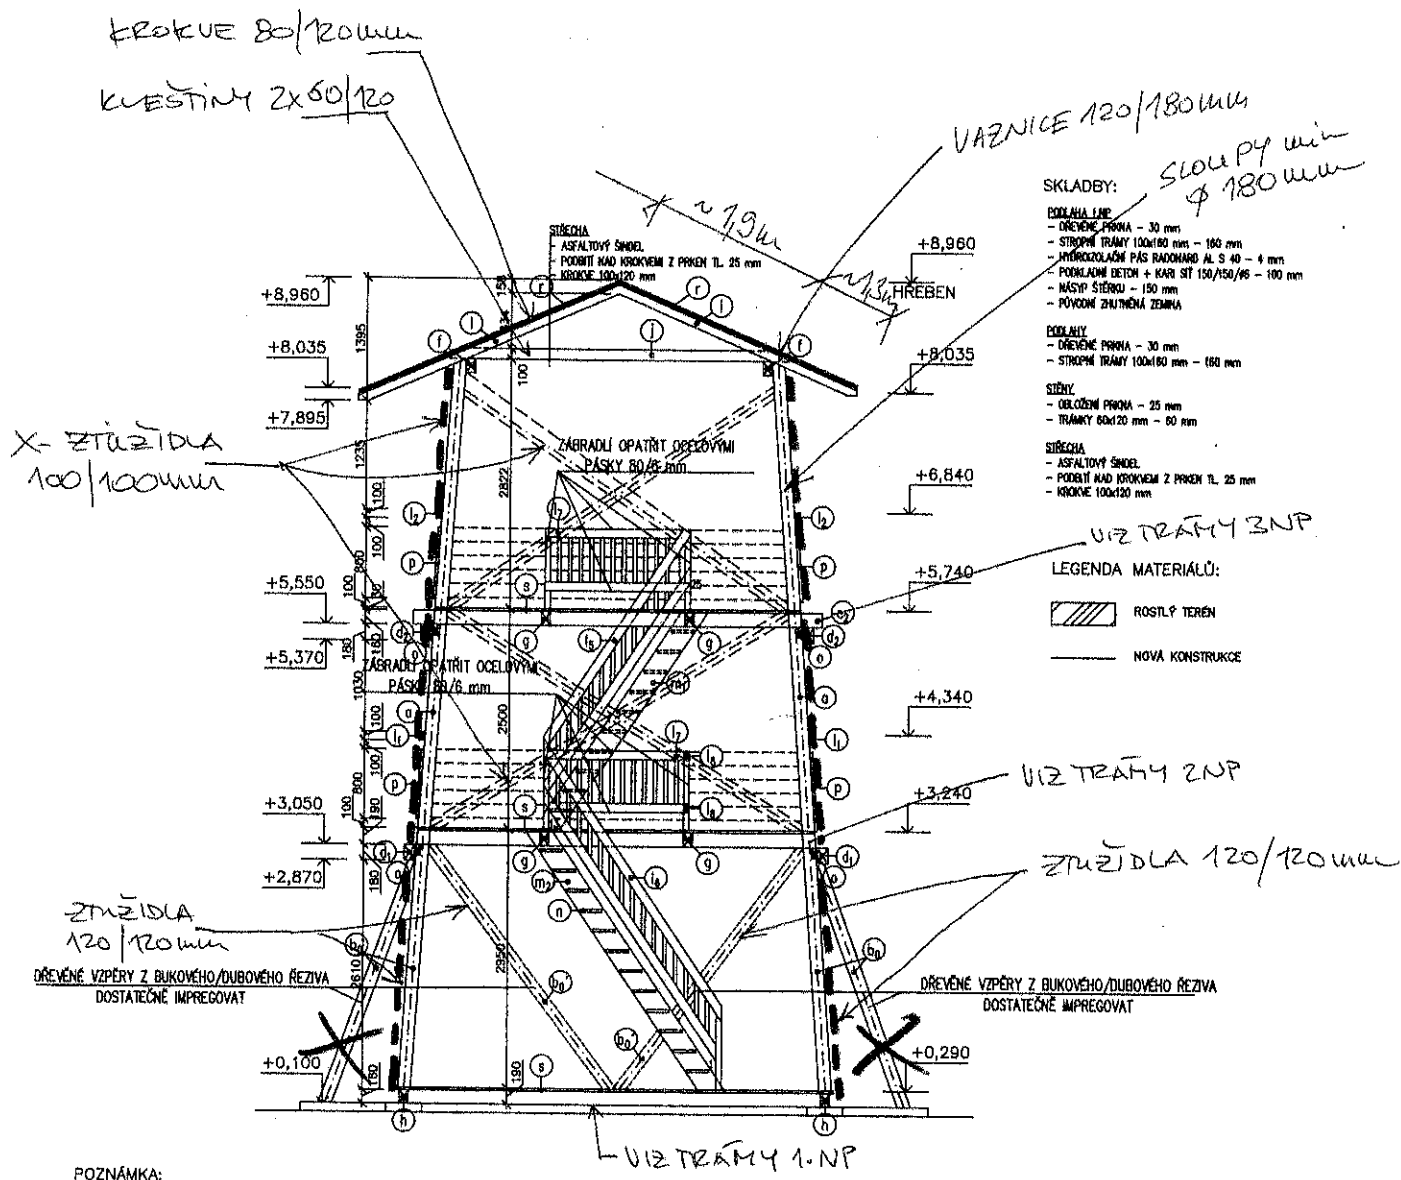 KROKVE 80/120mm
KLEŠTINY 2x60/120
VAZNICE 120/180mm
SLOUPY min
φ 180mm
~1,9m
~1,3m
SKLADBY:
PODLAHA I.NP
- DŘEVĚNÉ PRKNA - 30 mm
- STROPNÍ TRÁMY 100x160 mm - 160 mm
- HYDROIZOLAČNÍ PÁS RADONARD AL S 40 - 4 mm
- PODKLADNÍ BETON + KARI SÍŤ 150/150/#6 - 100 mm
- NÁSYP ŠTĚRKU - 150 mm
- PŮVODNÍ ZHUTNĚNÁ ZEMINA
PODLAHY
- DŘEVĚNÉ PRKNA - 30 mm
- STROPNÍ TRÁMY 100x160 mm - 160 mm
STĚNY
- OBLOŽENÍ PRKNA - 25 mm
- TRÁMKY 60x120 mm - 60 mm
STŘECHA
- ASFALTOVÝ ŠINDEL
- PODBITÍ NAD KROKVEMI Z PRKEN TL. 25 mm
- KROKVE 100x120 mm
STŘECHA
- ASFALTOVÝ ŠINDEL
- PODBITÍ NAD KROKVEMI Z PRKEN TL. 25 mm
- KROKVE 100x120 mm
+8,960
HŘEBEN
+8,960
+8,035
+8,035
+7,895
X-ZTUŽIDLA
100/100mm
ZÁBRADLÍ OPATŘIT OCELOVÝMI
PÁSKY 80/6 mm
+6,840
VIZ TRÁMY 3NP
LEGENDA MATERIÁLŮ:
ROSTLÝ TERÉN
NOVÁ KONSTRUKCE
+5,740
+5,550
+5,370
ZÁBRADLÍ OPATŘIT OCELOVÝMI
PÁSKY 80/6 mm
+4,340
VIZ TRÁMY 2NP
+3,240
+3,050
+2,870
ZTUŽIDLA 120/120mm
ZTUŽIDLA
120/120mm
DŘEVĚNÉ VZPĚRY Z BUKOVÉHO/DUBOVÉHO ŘEZIVA
DOSTATEČNĚ IMPREGOVAT
DŘEVĚNÉ VZPĚRY Z BUKOVÉHO/DUBOVÉHO ŘEZIVA
DOSTATEČNĚ IMPREGOVAT
+0,100
+0,290
1395
1235
1030
2610
2822
2500
2950
VIZ TRÁMY 1.NP
POZNÁMKA: